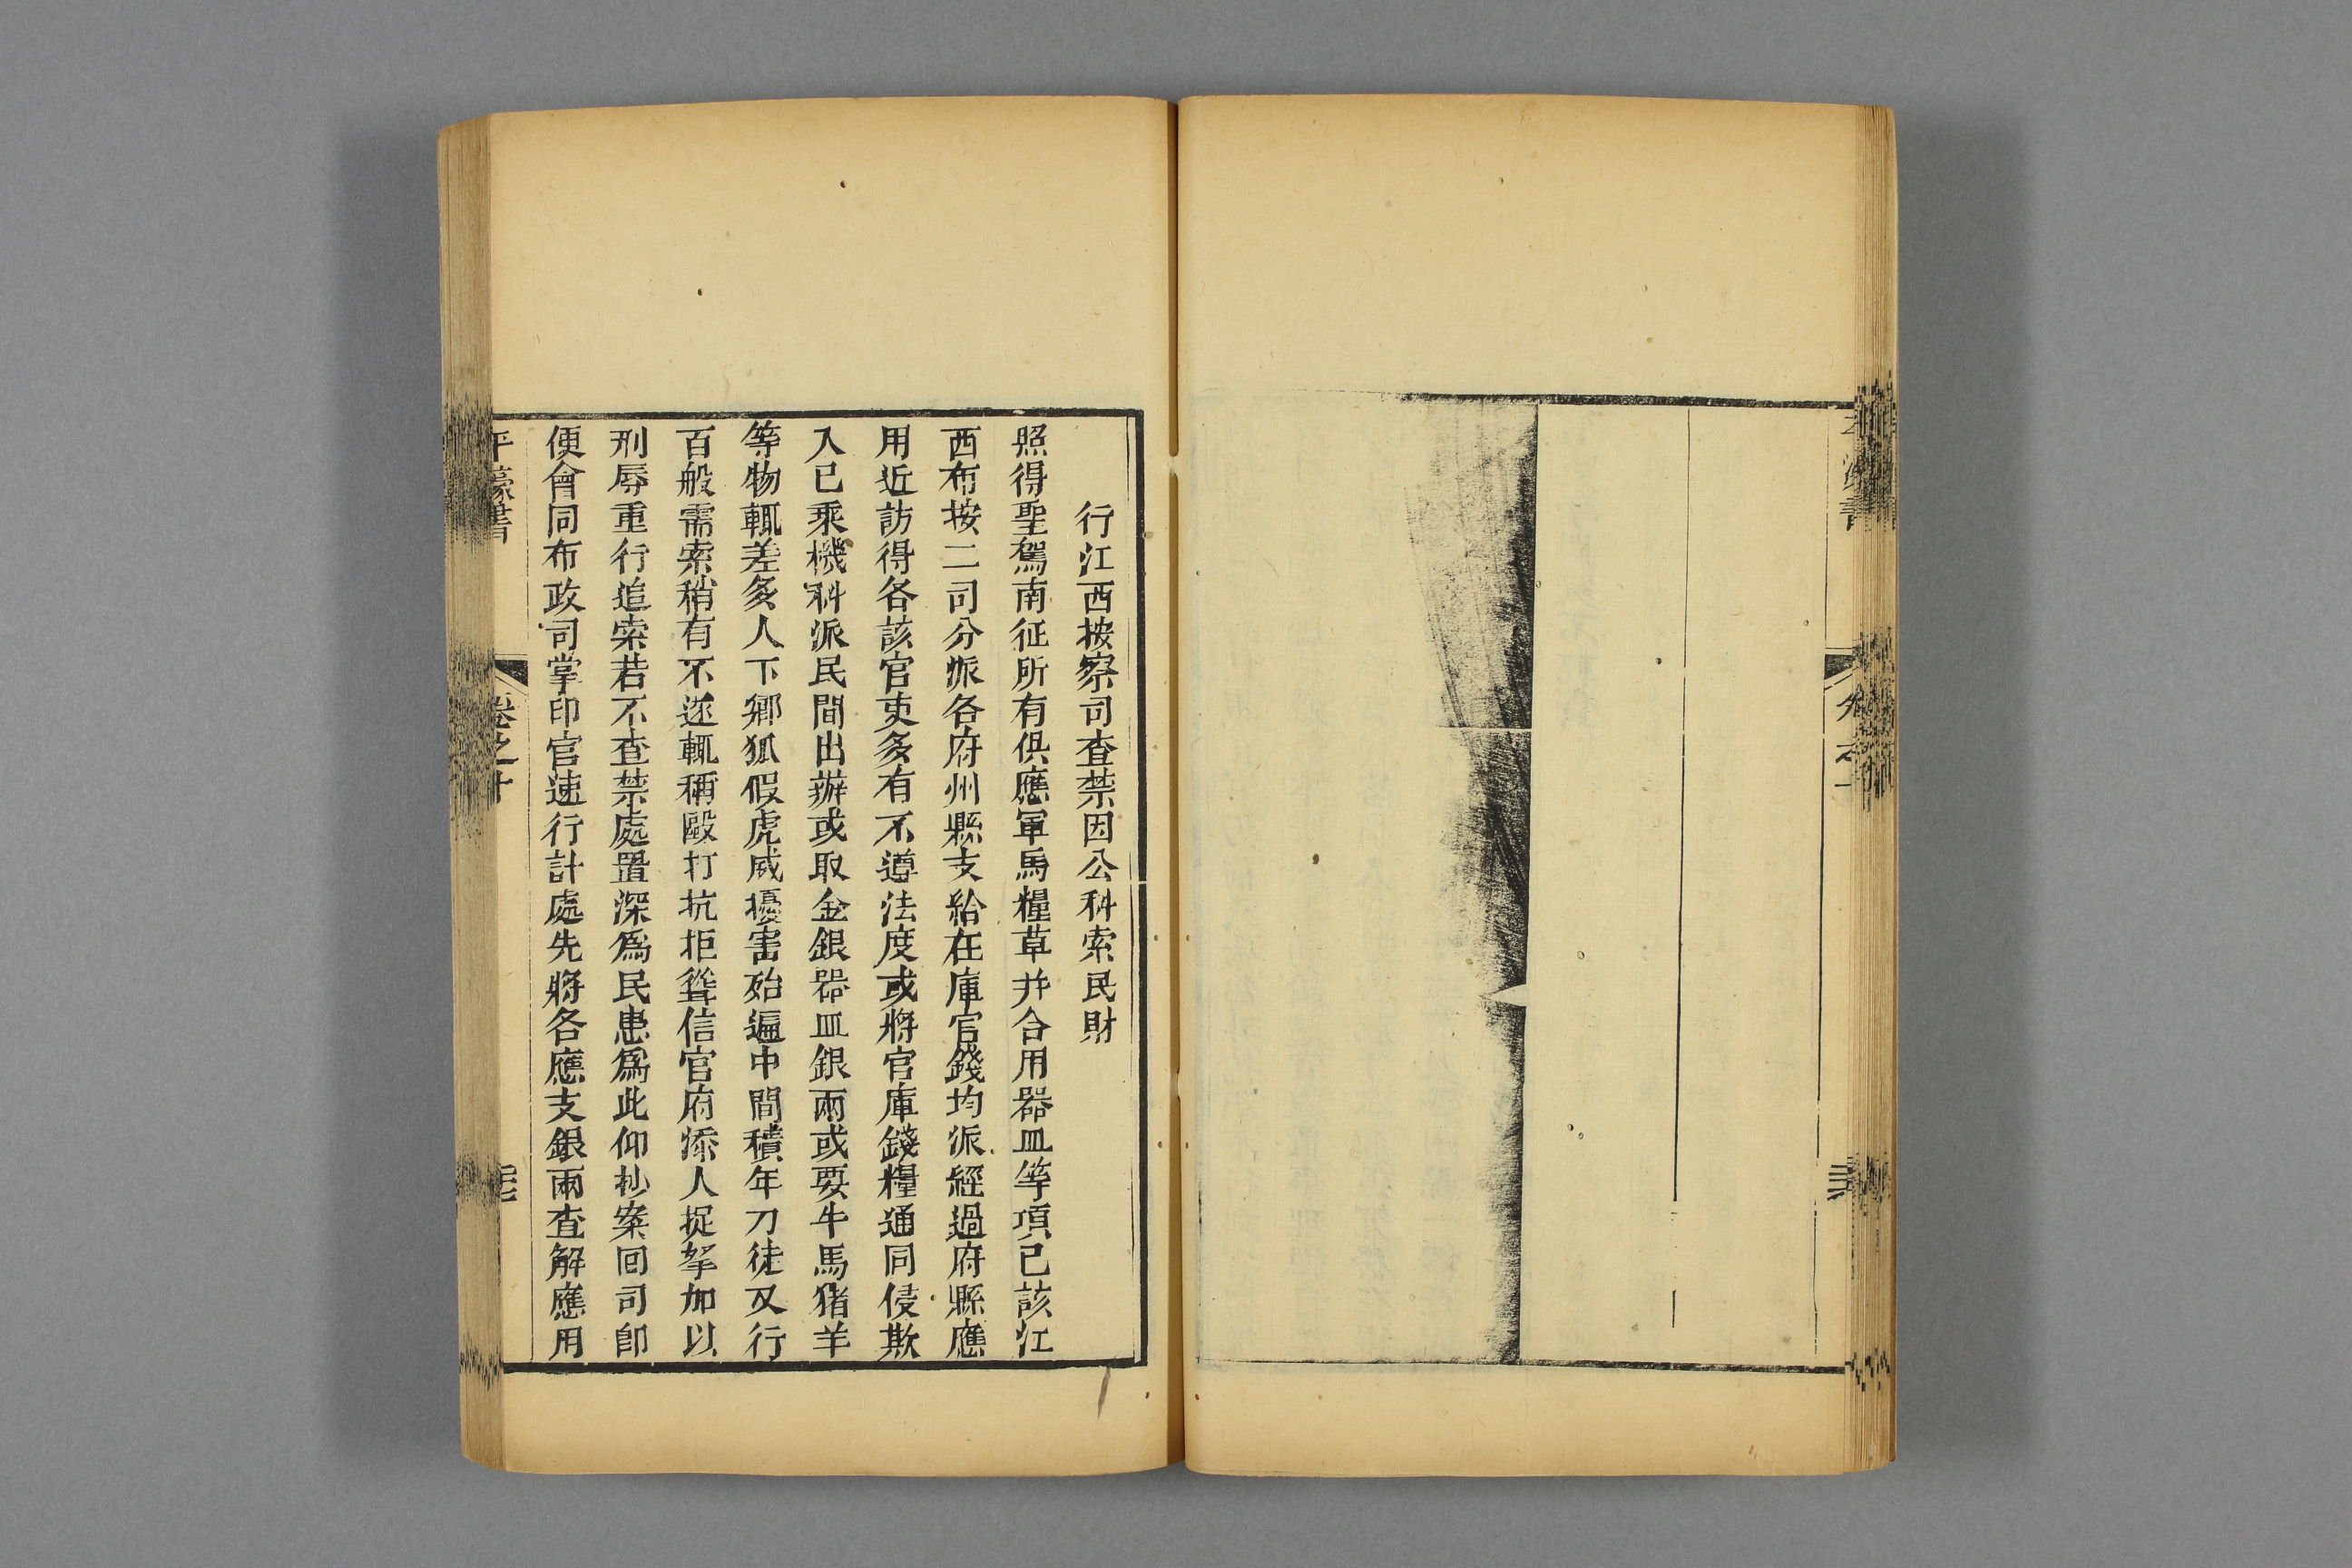 行江西按察司查禁因公科索民財
照得聖駕南征所有供應軍馬糧草并合用器皿等項已該江
西布按二司分派各府州縣支給在庫官錢均派經過府縣應
用近訪得各該官吏多有不遵法度或將官庫錢糧通同侵欺
入已乘機科派民間出辦或取金銀器皿銀兩或要牛馬猪羊
等物輒差多人下鄉狐假虎威擾害殆遍中間積年刁徒又行
百般需索稍有不遂輒稱毆打抗拒聳信官府添人捉拏加以
刑辱重行追索若不查禁處置深爲民患爲此仰抄案回司卽
便會同布政司掌印官速行計處先將各應支銀兩查解應用
平濠書
卷之十